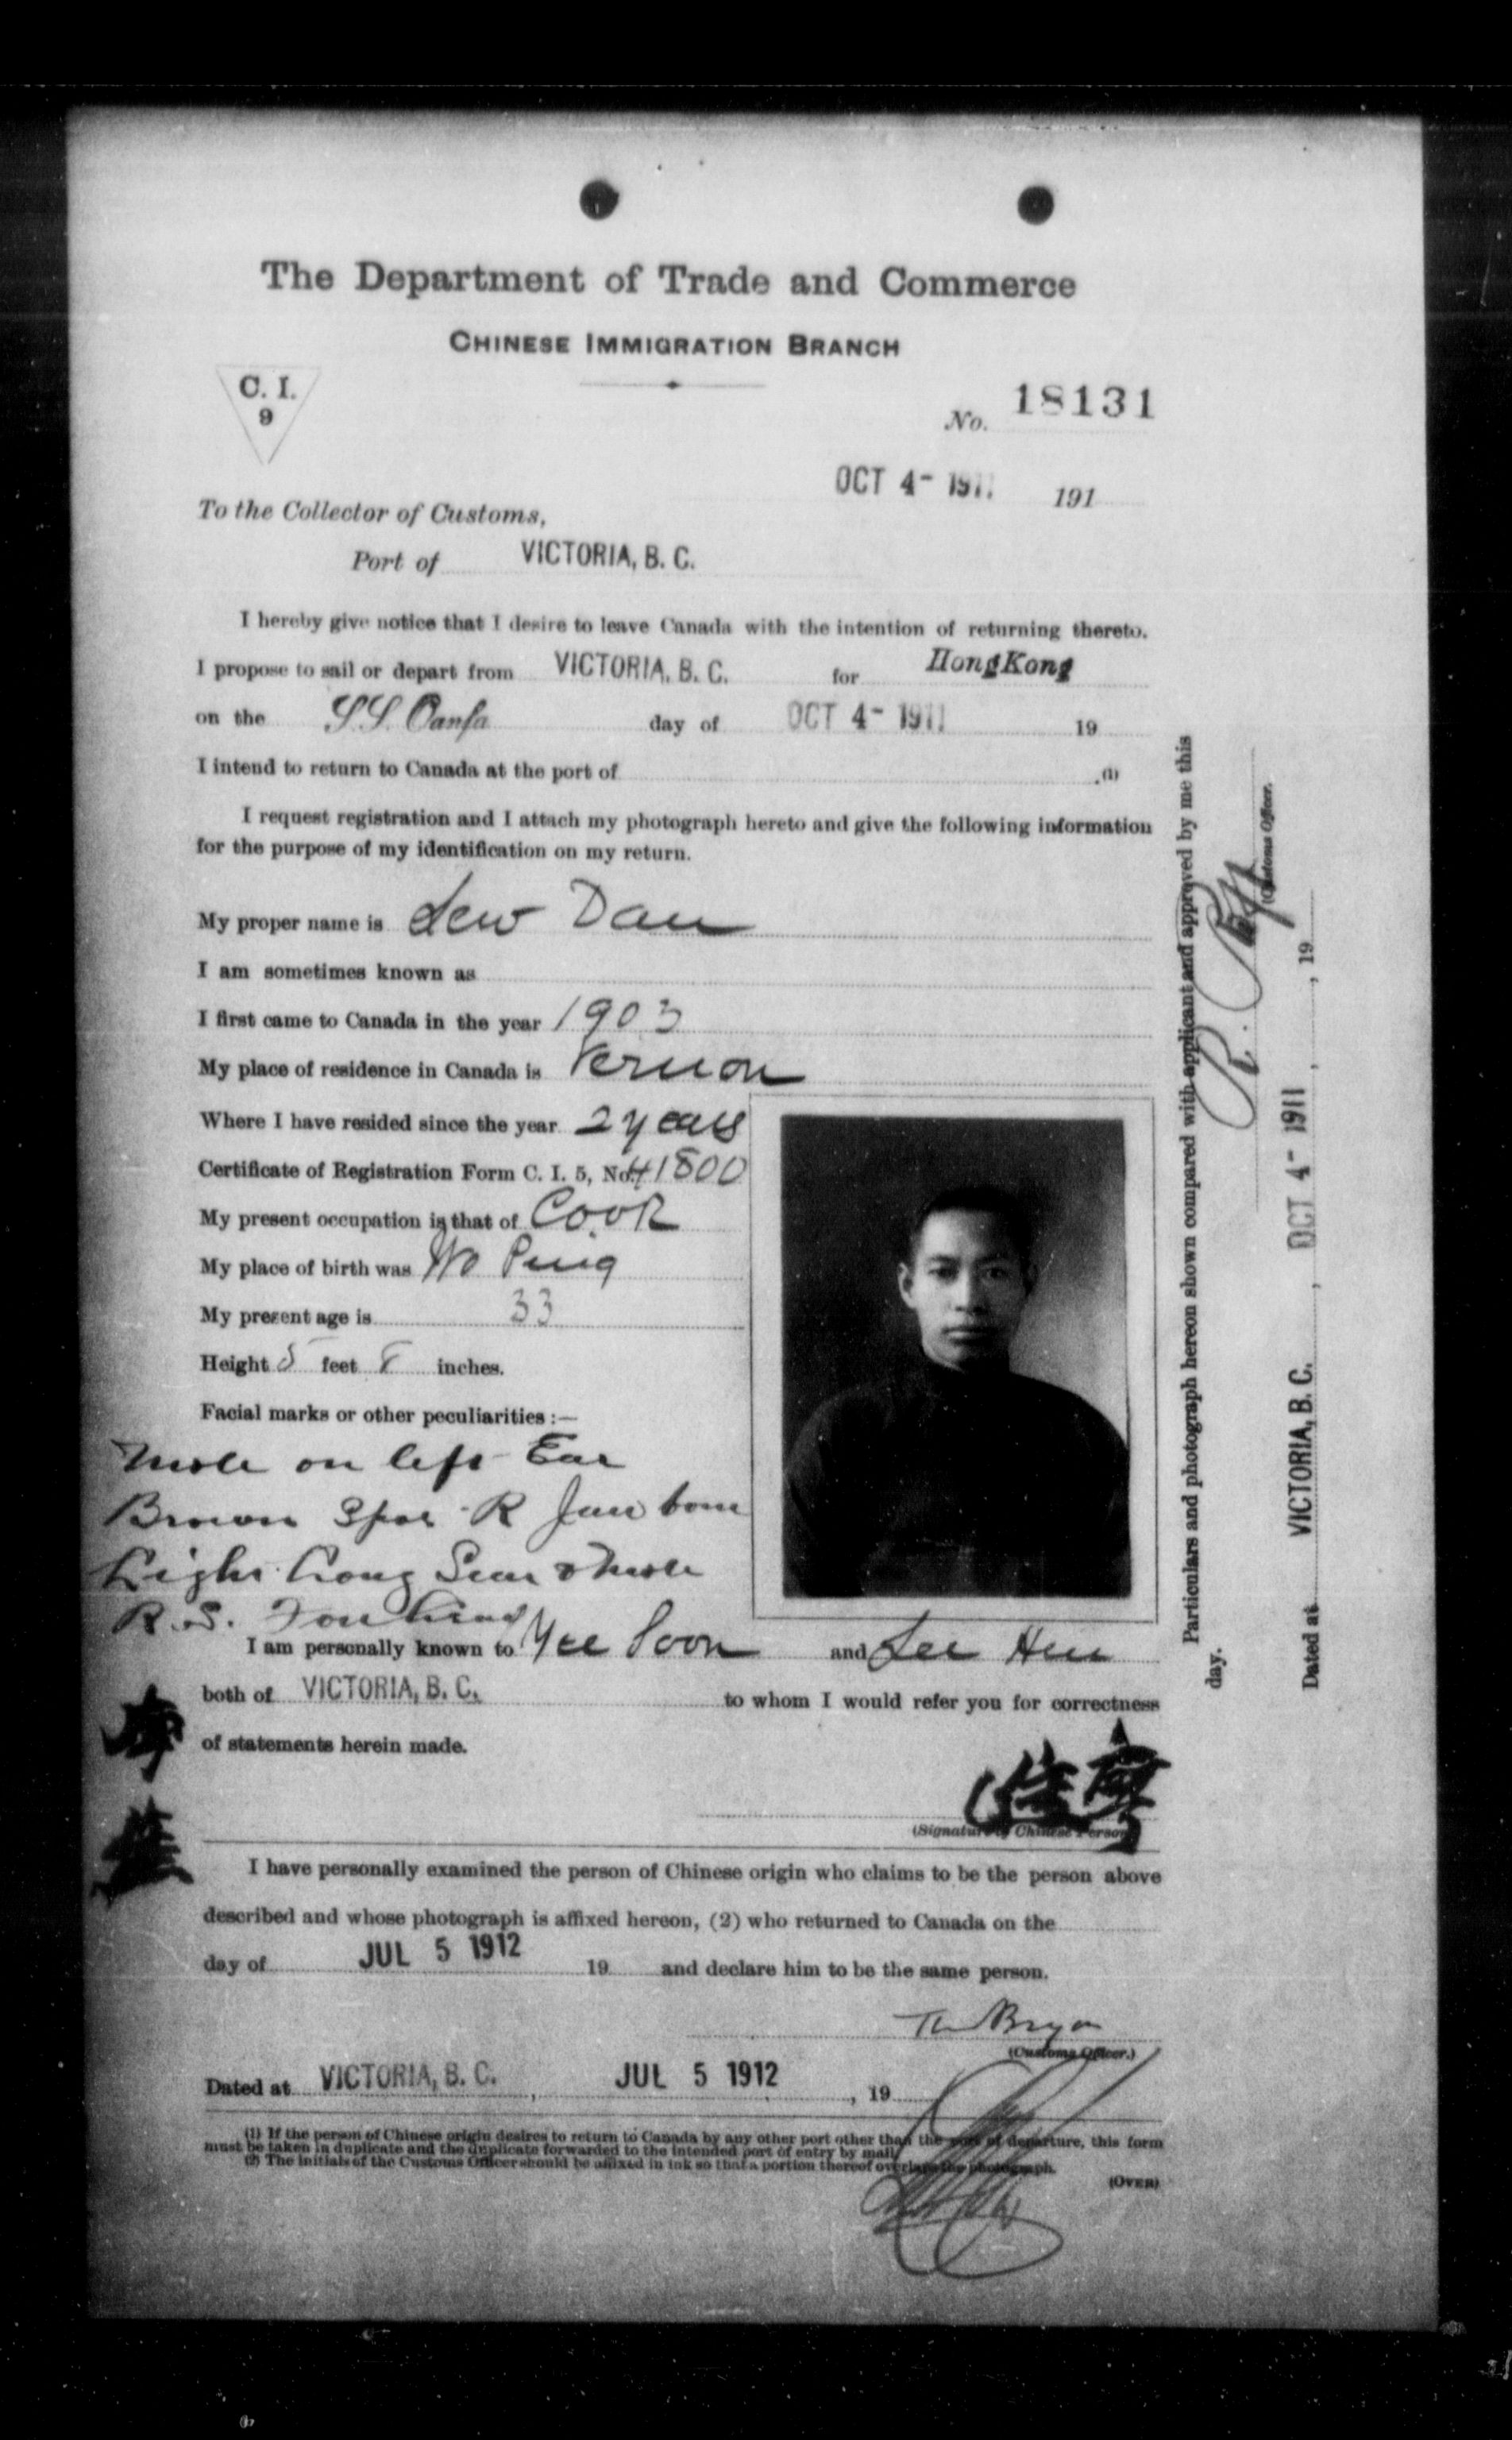 The Department of Trade and Commerce
CHINESE IMMIGRATION BRANCH
C. I.
9
No. 18131
OCT 4- 1911 191
To the Collector of Customs,
Port of VICTORIA, B. C.
I hereby give notice that I desire to leave Canada with the intention of returning thereto.
I propose to sail or depart from VICTORIA, B. C. for HongKong
on the S.S. Oanfa day of OCT 4- 1911 19
I intend to return to Canada at the port of .(1)
I request registration and I attach my photograph hereto and give the following information
for the purpose of my identification on my return.
My proper name is Lew Dan
I am sometimes known as
I first came to Canada in the year 1903
My place of residence in Canada is Vernon
Where I have resided since the year 2 years
Certificate of Registration Form C. I. 5, No. 41800
My present occupation is that of Cook
My place of birth was Wo Ping
My present age is 33
Height 5 feet 8 inches.
Facial marks or other peculiarities :—
Mole on left Ear
Brown Spot R Jaw bone
Light Long Scar & Mole
R. S. Forehead
I am personally known to Yee Soon and Lee Hen
both of VICTORIA, B. C. to whom I would refer you for correctness
of statements herein made.
(Signature of Chinese Person)
I have personally examined the person of Chinese origin who claims to be the person above
described and whose photograph is affixed hereon, (2) who returned to Canada on the
day of JUL 5 1912 19 and declare him to be the same person.
(Customs Officer.)
Dated at VICTORIA, B. C. , JUL 5 1912 , 19
(1) If the person of Chinese origin desires to return to Canada by any other port other than the port of departure, this form
must be taken in duplicate and the duplicate forwarded to the intended port of entry by mail.
(2) The initials of the Customs Officer should be affixed in ink so that a portion thereof overlaps the photograph.
(OVER)
Particulars and photograph hereon shown compared with applicant and approved by me this
day.
(Customs Officer.
Dated at VICTORIA, B. C. , OCT 4- 1911 , 19